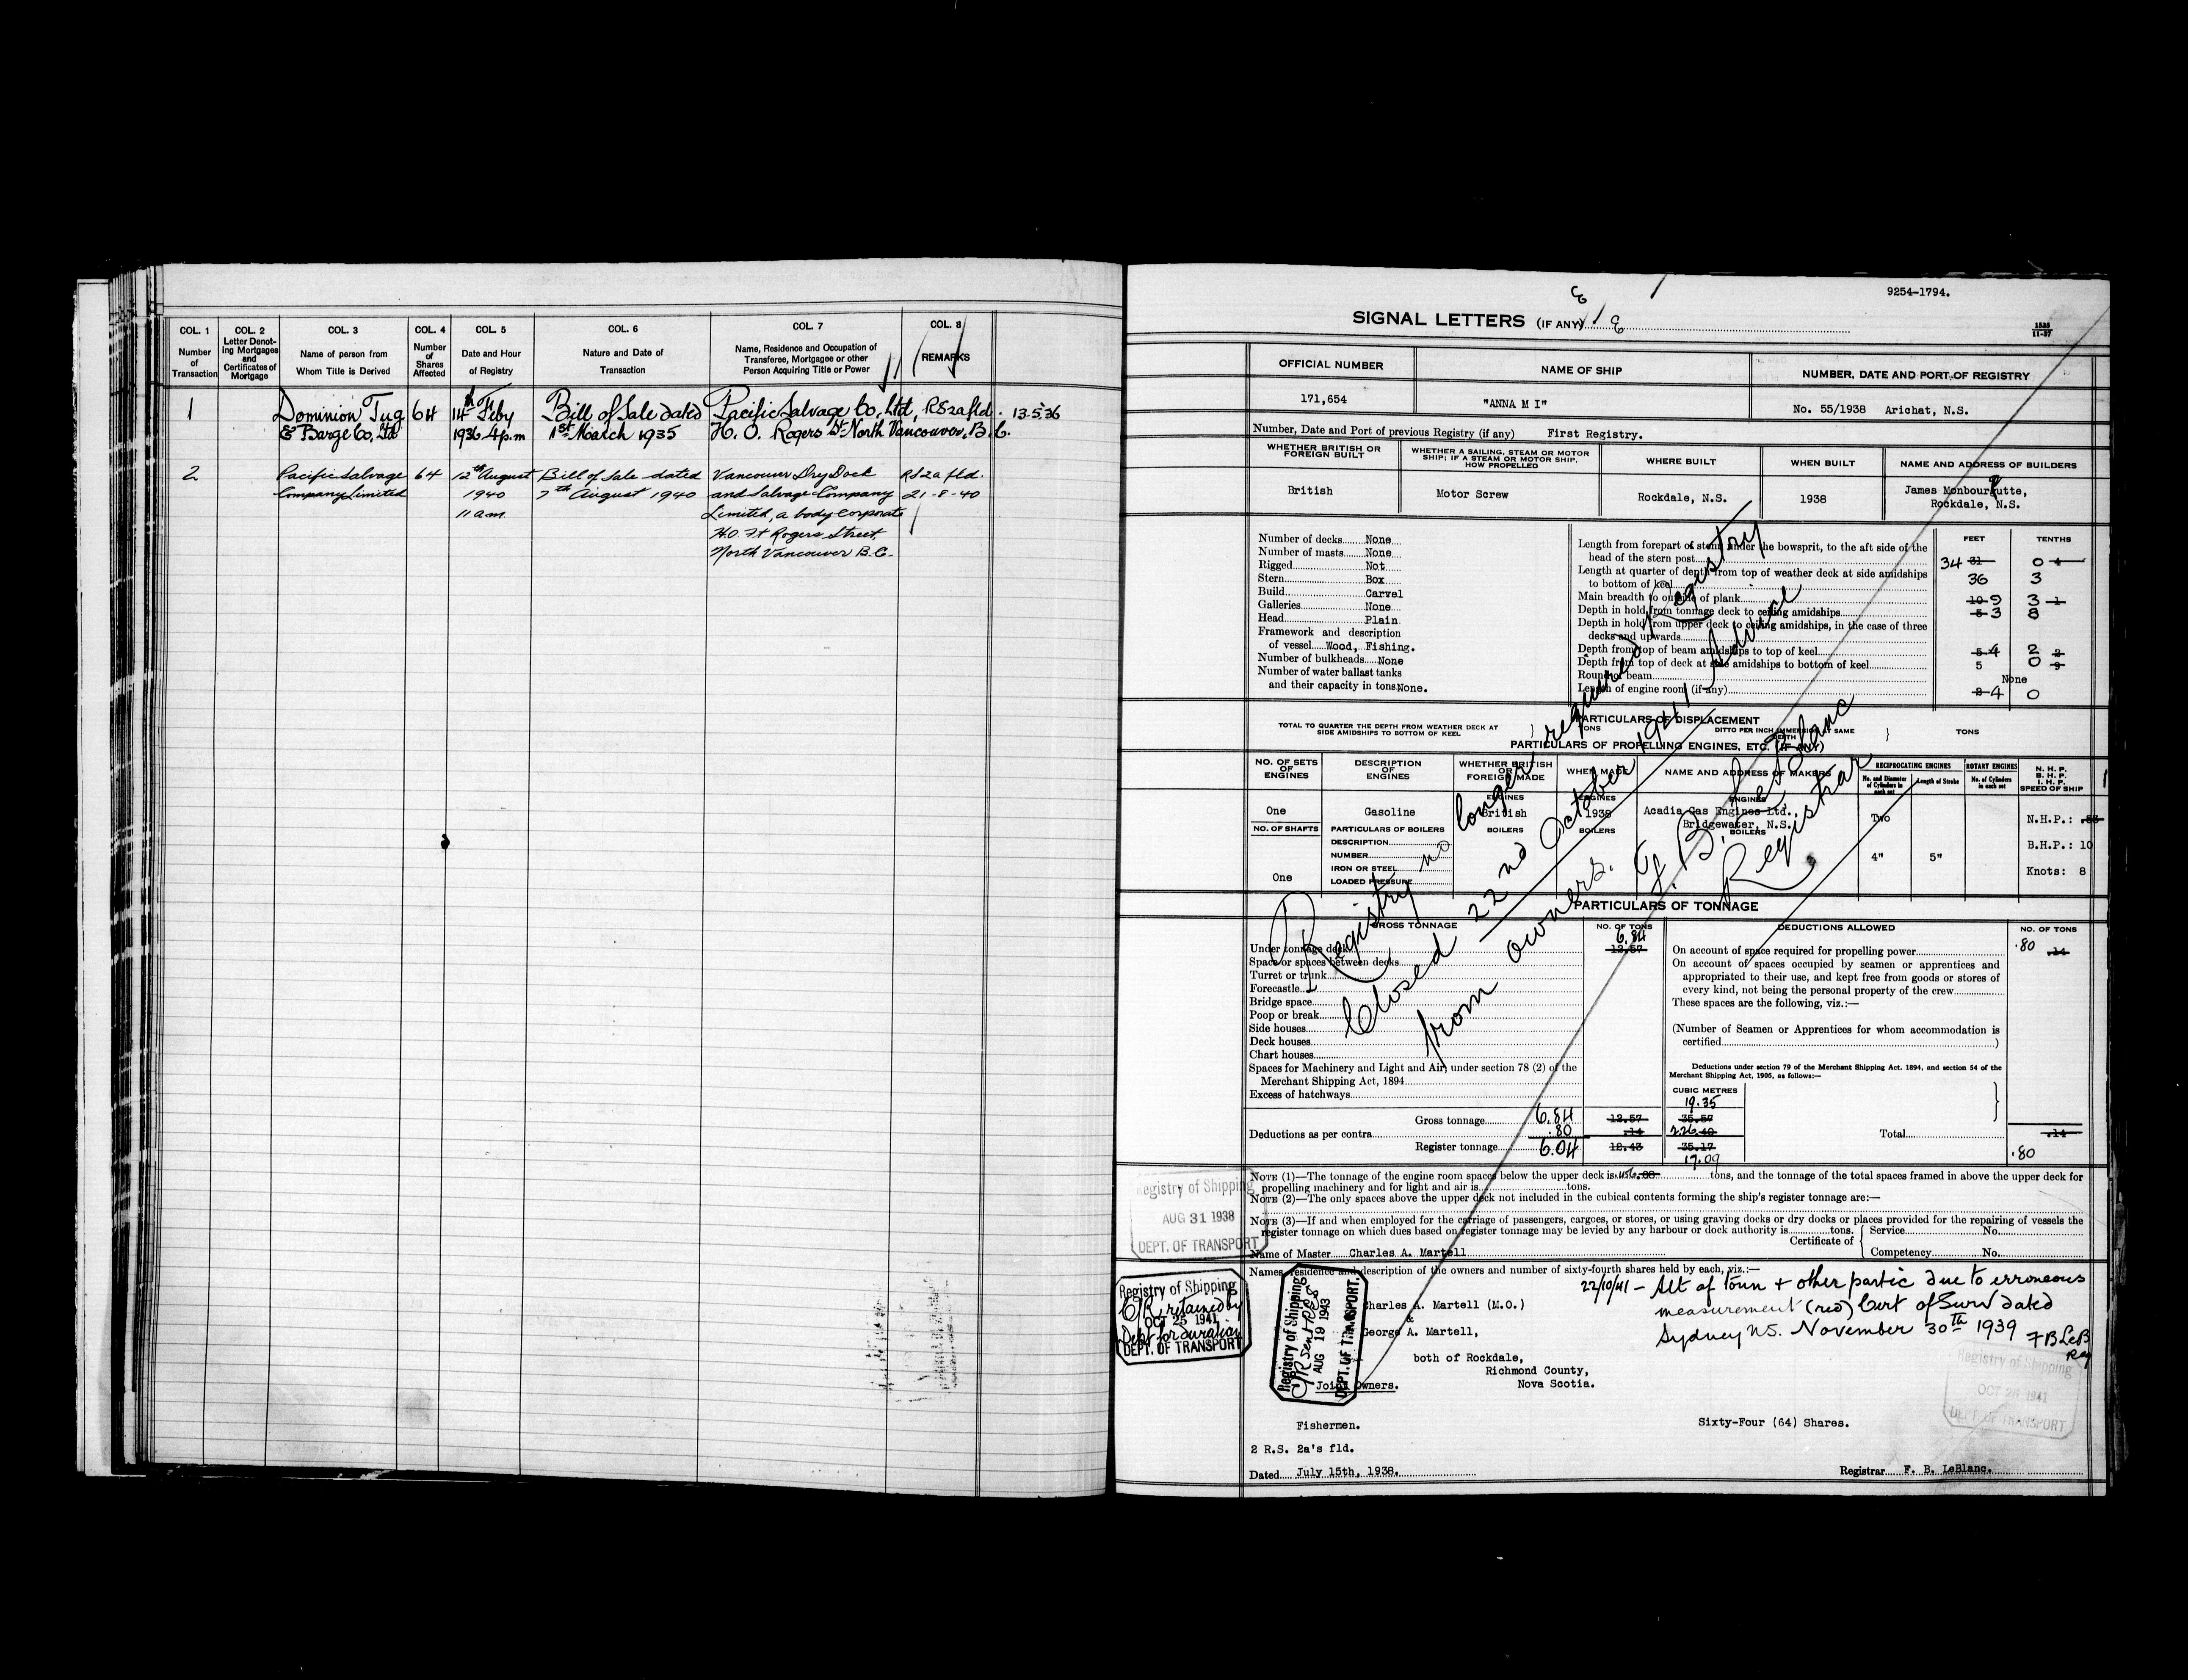 COL. 1 COL. 2 COL. 3 COL. 4 COL. 5 COL. 6 COL. 7 COL. 8
Number of Transaction
Letter Denoting Mortgages and Certificates of Mortgage
Name of person from Whom Title is Derived
Number of Shares Affected
Date and Hour of Registry
Nature and Date of Transaction
Name, Residence and Occupation of Transferee, Mortgagee or other Person Acquiring Title or Power
REMARKS
1 Dominion Tug 64 14th Feby Bill of Sale dated Pacific Salvage Co, Ltd, RS2a fld. 13.5.36
& Barge Co, Ltd 1936 4 p.m 1st March 1935 H. O. Rogers St North Vancouver, B.C.
2 Pacific Salvage 64 12th August Bill of Sale dated Vancouver Dry Dock RS2a fld.
Company Limited 1940 7th August 1940 and Salvage Company 21-8-40
11 a.m. Limited, a body corporate
H.O. Ft Rogers Street,
North Vancouver B.C.
9254-1794.
SIGNAL LETTERS (IF ANY)
1535
11-37
OFFICIAL NUMBER NAME OF SHIP NUMBER, DATE AND PORT OF REGISTRY
171,654 "ANNA M I" No. 55/1938 Arichat, N.S.
Number, Date and Port of previous Registry (if any) First Registry.
WHETHER BRITISH OR FOREIGN BUILT
WHETHER A SAILING, STEAM OR MOTOR SHIP; IF A STEAM OR MOTOR SHIP, HOW PROPELLED
WHERE BUILT WHEN BUILT NAME AND ADDRESS OF BUILDERS
British Motor Screw Rockdale, N.S. 1938 James Monbourqutte,
Rockdale, N.S.
FEET TENTHS
Number of decks None
Number of masts None
Rigged Not
Stern Box
Build Carvel
Galleries None
Head Plain
Framework and description
of vessel Wood, Fishing.
Number of bulkheads None
Number of water ballast tanks
and their capacity in tons None.
Length from forepart of stem, under the bowsprit, to the aft side of the
head of the stern post 34 31 0 4
Length at quarter of depth from top of weather deck at side amidships
to bottom of keel 36 3
Main breadth to outside of plank 10 9 3 1
Depth in hold from tonnage deck to ceiling amidships 5 3 8
Depth in hold from upper deck to ceiling amidships, in the case of three
decks and upwards
Depth from top of beam amidships to top of keel 5 4 2 2
Depth from top of deck at side amidships to bottom of keel 5 0 9
Round of beam None
Length of engine room (if any) 2 4 0
PARTICULARS OF DISPLACEMENT
TOTAL TO QUARTER THE DEPTH FROM WEATHER DECK AT SIDE AMIDSHIPS TO BOTTOM OF KEEL } TONS DITTO PER INCH IMMERSION AT SAME DEPTH } TONS
PARTICULARS OF PROPELLING ENGINES, ETC. (IF ANY)
NO. OF SETS OF ENGINES
DESCRIPTION OF ENGINES
WHETHER BRITISH OR FOREIGN MADE
WHEN MADE
NAME AND ADDRESS OF MAKERS
RECIPROCATING ENGINES
No. and Diameter of Cylinders in each set
Length of Stroke
ROTARY ENGINES
No. of Cylinders in each set
N. H. P.
B. H. P.
I. H. P.
SPEED OF SHIP
ENGINES ENGINES ENGINES
One Gasoline British 1938 Acadia Gas Engines Ltd., Two N.H.P.:
Bridgewater, N.S.
NO. OF SHAFTS PARTICULARS OF BOILERS BOILERS BOILERS BOILERS
DESCRIPTION B.H.P.: 10
NUMBER
4" 5"
IRON OR STEEL
One LOADED PRESSURE Knots: 8
PARTICULARS OF TONNAGE
GROSS TONNAGE NO. OF TONS DEDUCTIONS ALLOWED NO. OF TONS
Under tonnage deck 6.84 12.57
Space or spaces between decks
Turret or trunk
Forecastle
Bridge space
Poop or break
Side houses
Deck houses
Chart houses
Spaces for Machinery and Light and Air, under section 78 (2) of the
Merchant Shipping Act, 1894
Excess of hatchways
Gross tonnage 6.84 12.57
Deductions as per contra .80 .14
Register tonnage 6.04 12.43
On account of space required for propelling power .80 .14
On account of spaces occupied by seamen or apprentices and
appropriated to their use, and kept free from goods or stores of
every kind, not being the personal property of the crew
These spaces are the following, viz.:—
(Number of Seamen or Apprentices for whom accommodation is
certified )
Deductions under section 79 of the Merchant Shipping Act. 1894, and section 54 of the
Merchant Shipping Act, 1906, as follows:—
CUBIC METRES
19.35
35.57
2.26 .40
35.17
17.09
Total .14
.80
Registry no longer required Registry
Closed 22nd October 1941, Advice
from owners. F. B. LeBlanc
Registrar
NOTE (1)—The tonnage of the engine room spaces below the upper deck is tons, and the tonnage of the total spaces framed in above the upper deck for
propelling machinery and for light and air is tons.
NOTE (2)—The only spaces above the upper deck not included in the cubical contents forming the ship's register tonnage are:—
NOTE (3)—If and when employed for the carriage of passengers, cargoes, or stores, or using graving docks or dry docks or places provided for the repairing of vessels the
register tonnage on which dues based on register tonnage may be levied by any harbour or dock authority is tons.
Certificate of { Service No.
Competency No.
Name of Master Charles A. Martell
Registry of Shipping
AUG 31 1938
DEPT. OF TRANSPORT
Names, residence and description of the owners and number of sixty-fourth shares held by each, viz.:—
22/10/41 - Alt of tonn + other partic due to erroneous
measurement (red) Cert of Surv dated
Sydney NS. November 30th 1939 FBLeB
Reg
Registry of Shipping
C/R retained by
OCT 25 1941
Dept for duration
DEPT. OF TRANSPORT
Registry of Shipping
AUG 19 1943
DEPT. OF TRANSPORT.
Charles A. Martell (M.O.)
&
George A. Martell,
both of Rockdale,
Richmond County,
Nova Scotia.
Joint Owners.
Registry of Shipping
OCT 25 1941
DEPT. OF TRANSPORT
Fishermen.
Sixty-Four (64) Shares.
2 R.S. 2a's fld.
Dated July 15th, 1938.
Registrar F. B. LeBlanc.